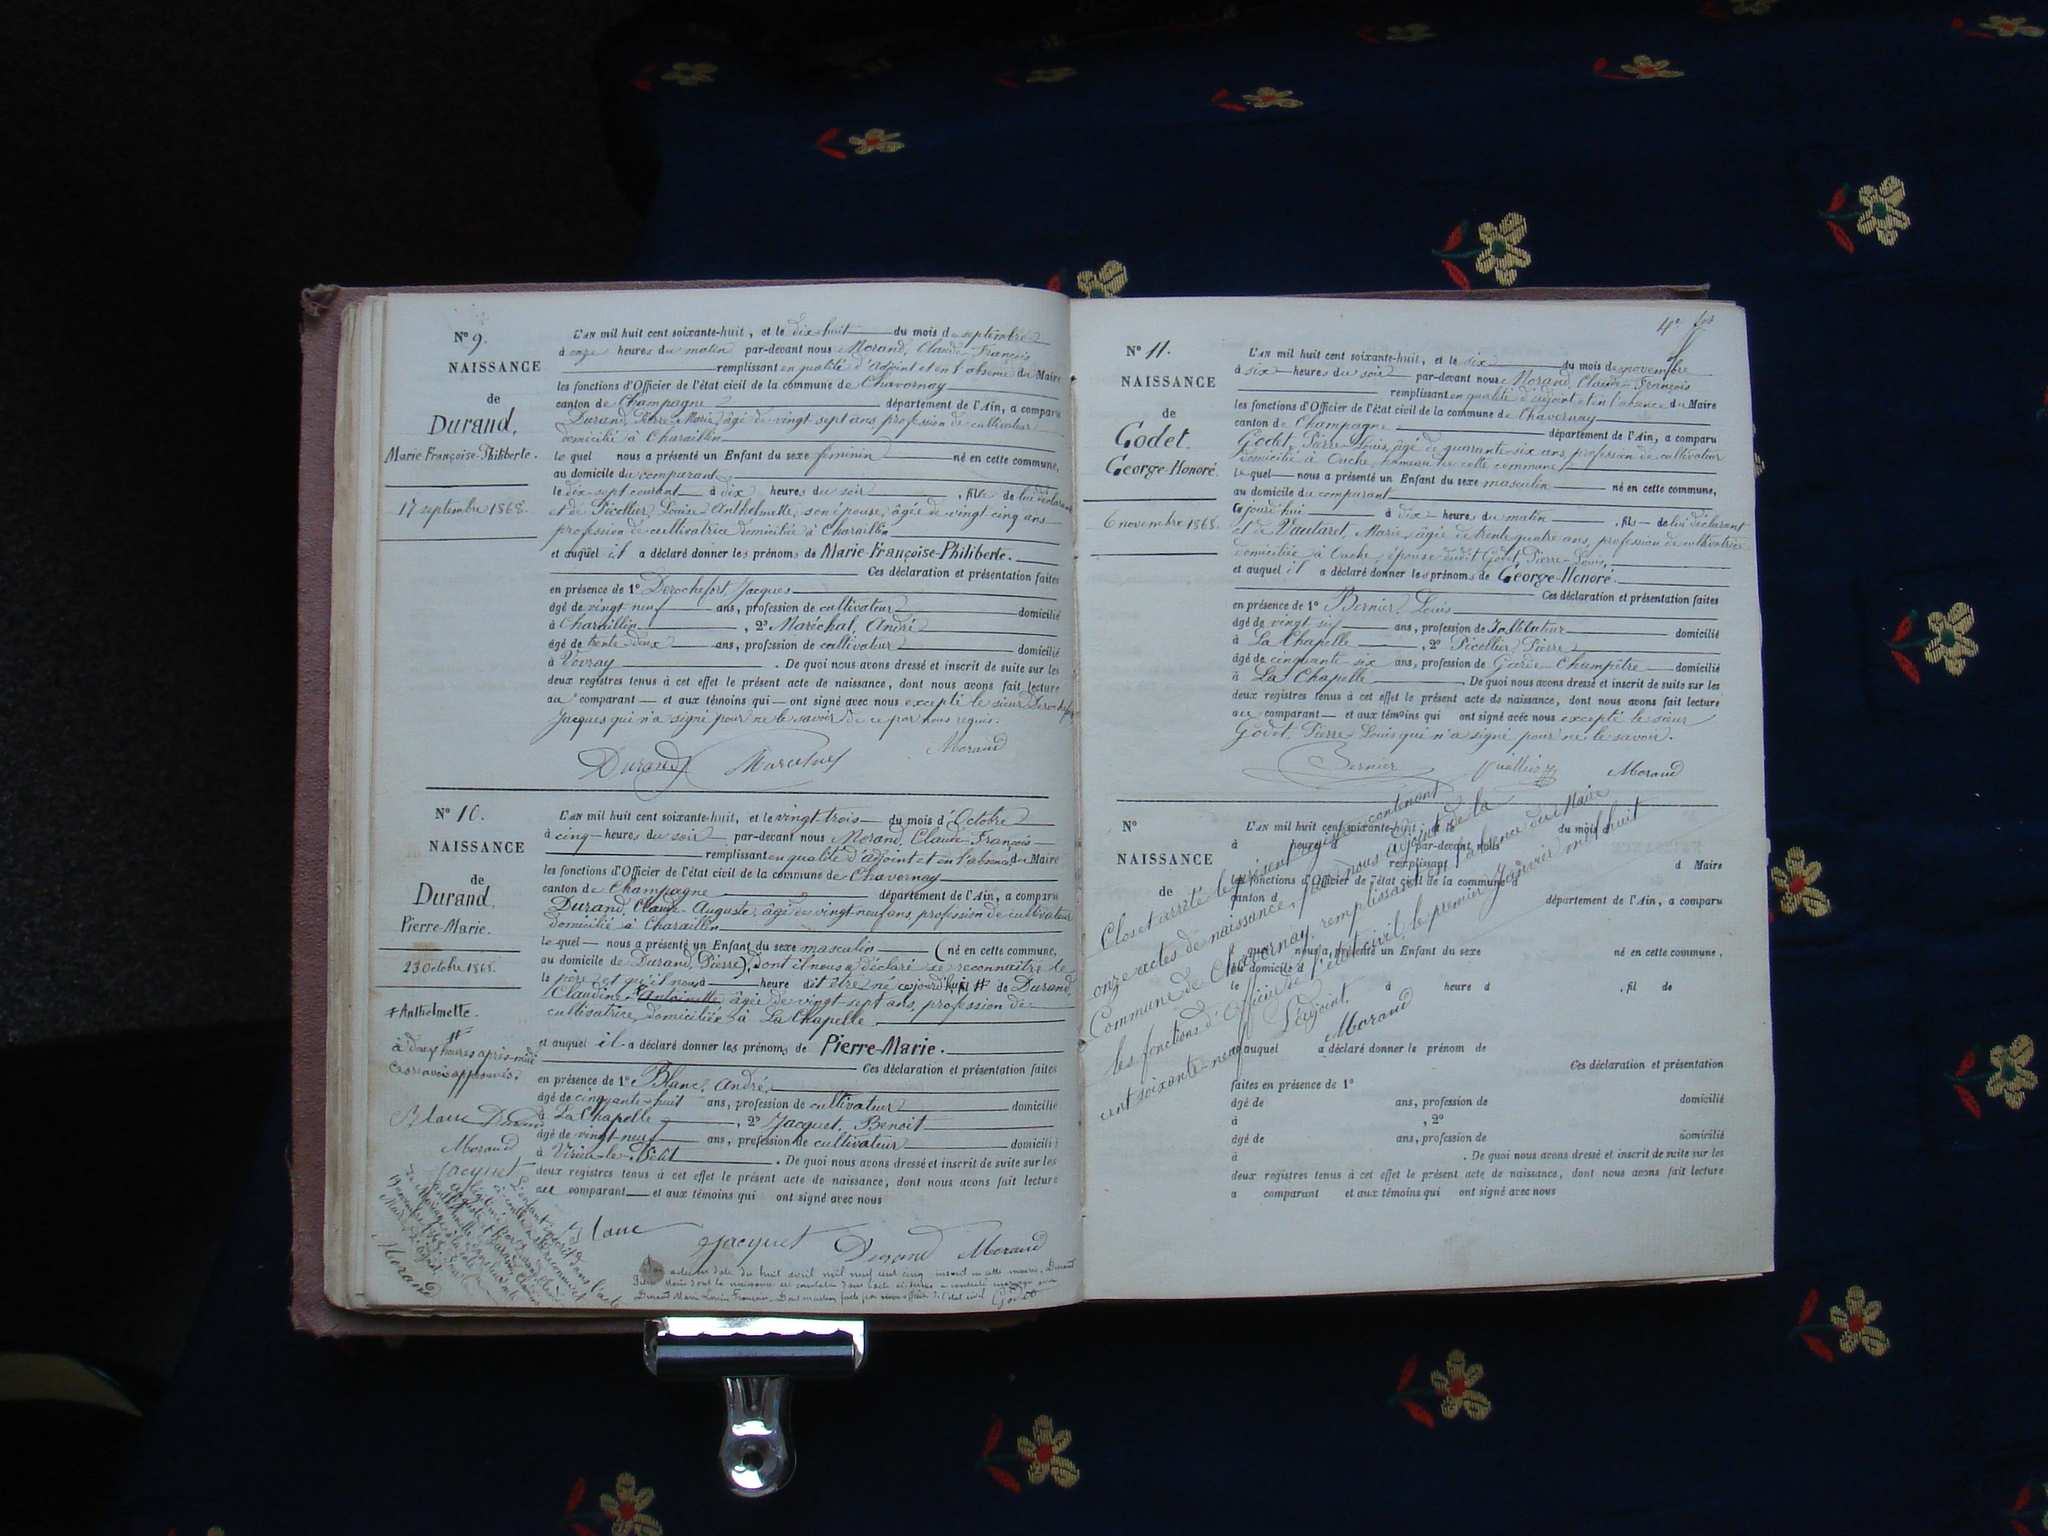 N° 9.
NAISSANCE
de
Durand,
Marie-Françoise-Philiberte.
17 septembre 1868.
L'AN mil huit cent soixante-huit, et le dix-huit du mois de septembre
à onze heures du matin par-devant nous Morand, Claude-François
remplissant en qualité d'adjoint et en l'absence du Maire
les fonctions d'Officier de l'état civil de la commune de Chavornay
canton de Champagne département de l'Ain, a comparu
Durand, Pierre-Marie, âgé de vingt sept ans, profession de cultivateur
domicilié à Charaillin
le quel nous a présenté un Enfant du sexe féminin né en cette commune,
au domicile du comparant
le dix-sept courant à dix heures du soir, fille de lui déclarant
et de Picollier, Louise Anthelmette, son épouse, âgée de vingt cinq ans
profession de cultivatrice domiciliée à Charaillin
et auquel il a déclaré donner les prénoms de Marie-Françoise-Philiberte.
Ces déclaration et présentation faites
en présence de 1° Derochefort, Jacques
âgé de vingt neuf ans, profession de cultivateur domicilié
à Charaillin, 2° Maréchal, André
âgé de trente-deux ans, profession de cultivateur domicilié
à Vovray. De quoi nous avons dressé et inscrit de suite sur les
deux registres tenus à cet effet le présent acte de naissance, dont nous avons fait lecture
au comparant et aux témoins qui ont signé avec nous excepté le sieur Derochefort
Jacques qui n'a signé pour ne le savoir de ce par nous requis.
Durand Morand
N° 10.
NAISSANCE
de
Durand,
Pierre-Marie.
23 Octobre 1868.
# Anthelmette.
à deux heures après-midi
Ces renvois approuvés.
Blanc Durand
Morand
Jacquet
L'AN mil huit cent soixante-huit, et le vingt trois du mois d'Octobre
à cinq heures du soir par-devant nous Morand, Claude-François
remplissant en qualité d'adjoint et en l'absence du Maire
les fonctions d'Officier de l'état civil de la commune de Chavornay
canton de Champagne département de l'Ain, a comparu
Durand, Claude-Auguste, âgé de vingt-neuf ans, profession de cultivateur
domicilié à Charaillin
le quel nous a présenté un Enfant du sexe masculin (né en cette commune,
au domicile de Durand, Pierre), dont il nous a déclaré se reconnaître le
père et qu'il nous a dit être né cejourd'hui # de Durand,
Claudine Antoinette âgée de vingt-sept ans, profession de
cultivatrice, domiciliée à La Chapelle
et auquel il a déclaré donner les prénoms de Pierre-Marie.
Ces déclaration et présentation faites
en présence de 1° Blanc, André
âgé de cinquante-huit ans, profession de cultivateur domicilié
à La Chapelle, 2° Jacquet, Benoit
âgé de vingt-neuf ans, profession de cultivateur domicilié
à Virieu-le-Petit. De quoi nous avons dressé et inscrit de suite sur les
deux registres tenus à cet effet le présent acte de naissance, dont nous avons fait lecture
au comparant et aux témoins qui ont signé avec nous
Blanc Jacquet Durand Morand
Morand
acte en date du huit avril mil neuf cent cinq inscrit en cette mairie, Durand
Pierre Marie dont la naissance est constatée dans l'acte ci-dessus a contracté mariage avec
Durand Marie Louise
4e
N° 11.
NAISSANCE
de
Godet.
George-Honoré.
6 novembre 1868.
L'AN mil huit cent soixante-huit, et le six du mois de novembre
à six heures du soir par-devant nous Morand, Claude-François
remplissant en qualité d'adjoint et en l'absence du Maire
les fonctions d'Officier de l'état civil de la commune de Chavornay
canton de Champagne département de l'Ain, a comparu
Godet, Pierre-Louis, âgé de quarante-six ans, profession de cultivateur
domicilié à Ouche, hameau de cette commune
le quel nous a présenté un Enfant du sexe masculin né en cette commune,
au domicile du comparant
cejourd'hui à dix heures du matin, fils de lui déclarant
et de Vautaret, Marie, âgée de trente quatre ans, profession de cultivatrice
domiciliée à Ouche, épouse dudit Godet, Pierre-Louis,
et auquel il a déclaré donner les prénoms de George-Honoré.
Ces déclaration et présentation faites
en présence de 1° Bernier, Louis
âgé de vingt six ans, profession de Instituteur domicilié
à La Chapelle, 2° Picollier, Pierre
âgé de cinquante-six ans, profession de Garde-Champêtre domicilié
à La Chapelle. De quoi nous avons dressé et inscrit de suite sur les
deux registres tenus à cet effet le présent acte de naissance, dont nous avons fait lecture
au comparant et aux témoins qui ont signé avec nous excepté le sieur
Godet, Pierre-Louis qui n'a signé pour ne le savoir.
Bernier Morand
N°
NAISSANCE
de
L'AN mil huit cent soixante-huit, et le du mois d
à heure d par-devant nous
remplissant d Maire
les fonctions d'Officier de l'état civil de la commune d
canton d département de l'Ain, a comparu
l quel nous a présenté un Enfant du sexe né en cette commune,
au domicile d
le à heure d , fil de
et auquel a déclaré donner le prénom de
Ces déclaration et présentation
faites en présence de 1°
âgé de ans, profession de domicilié
à , 2°
âgé de ans, profession de domicilié
à . De quoi nous avons dressé et inscrit de suite sur les
deux registres tenus à cet effet le présent acte de naissance, dont nous avons fait lecture
a comparant et aux témoins qui ont signé avec nous
Clos et arrêté le présent registre contenant
onze actes de naissance, par nous adjoint de la
Commune de Chavornay, remplissant en l'absence du Maire
les fonctions d'Officier de l'état civil, le premier Janvier mil huit
cent soixante-neuf
L'adjoint,
Morand